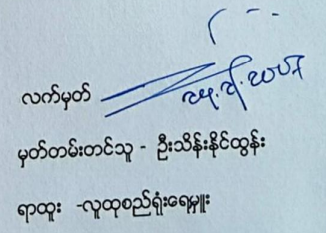 လက်မှတ်
မှတ်တမ်းတင်သူ - ဦးသိန်းနိုင်ထွန်း
ရာထူး -လူထုစည်ရုံးရေးမှူး